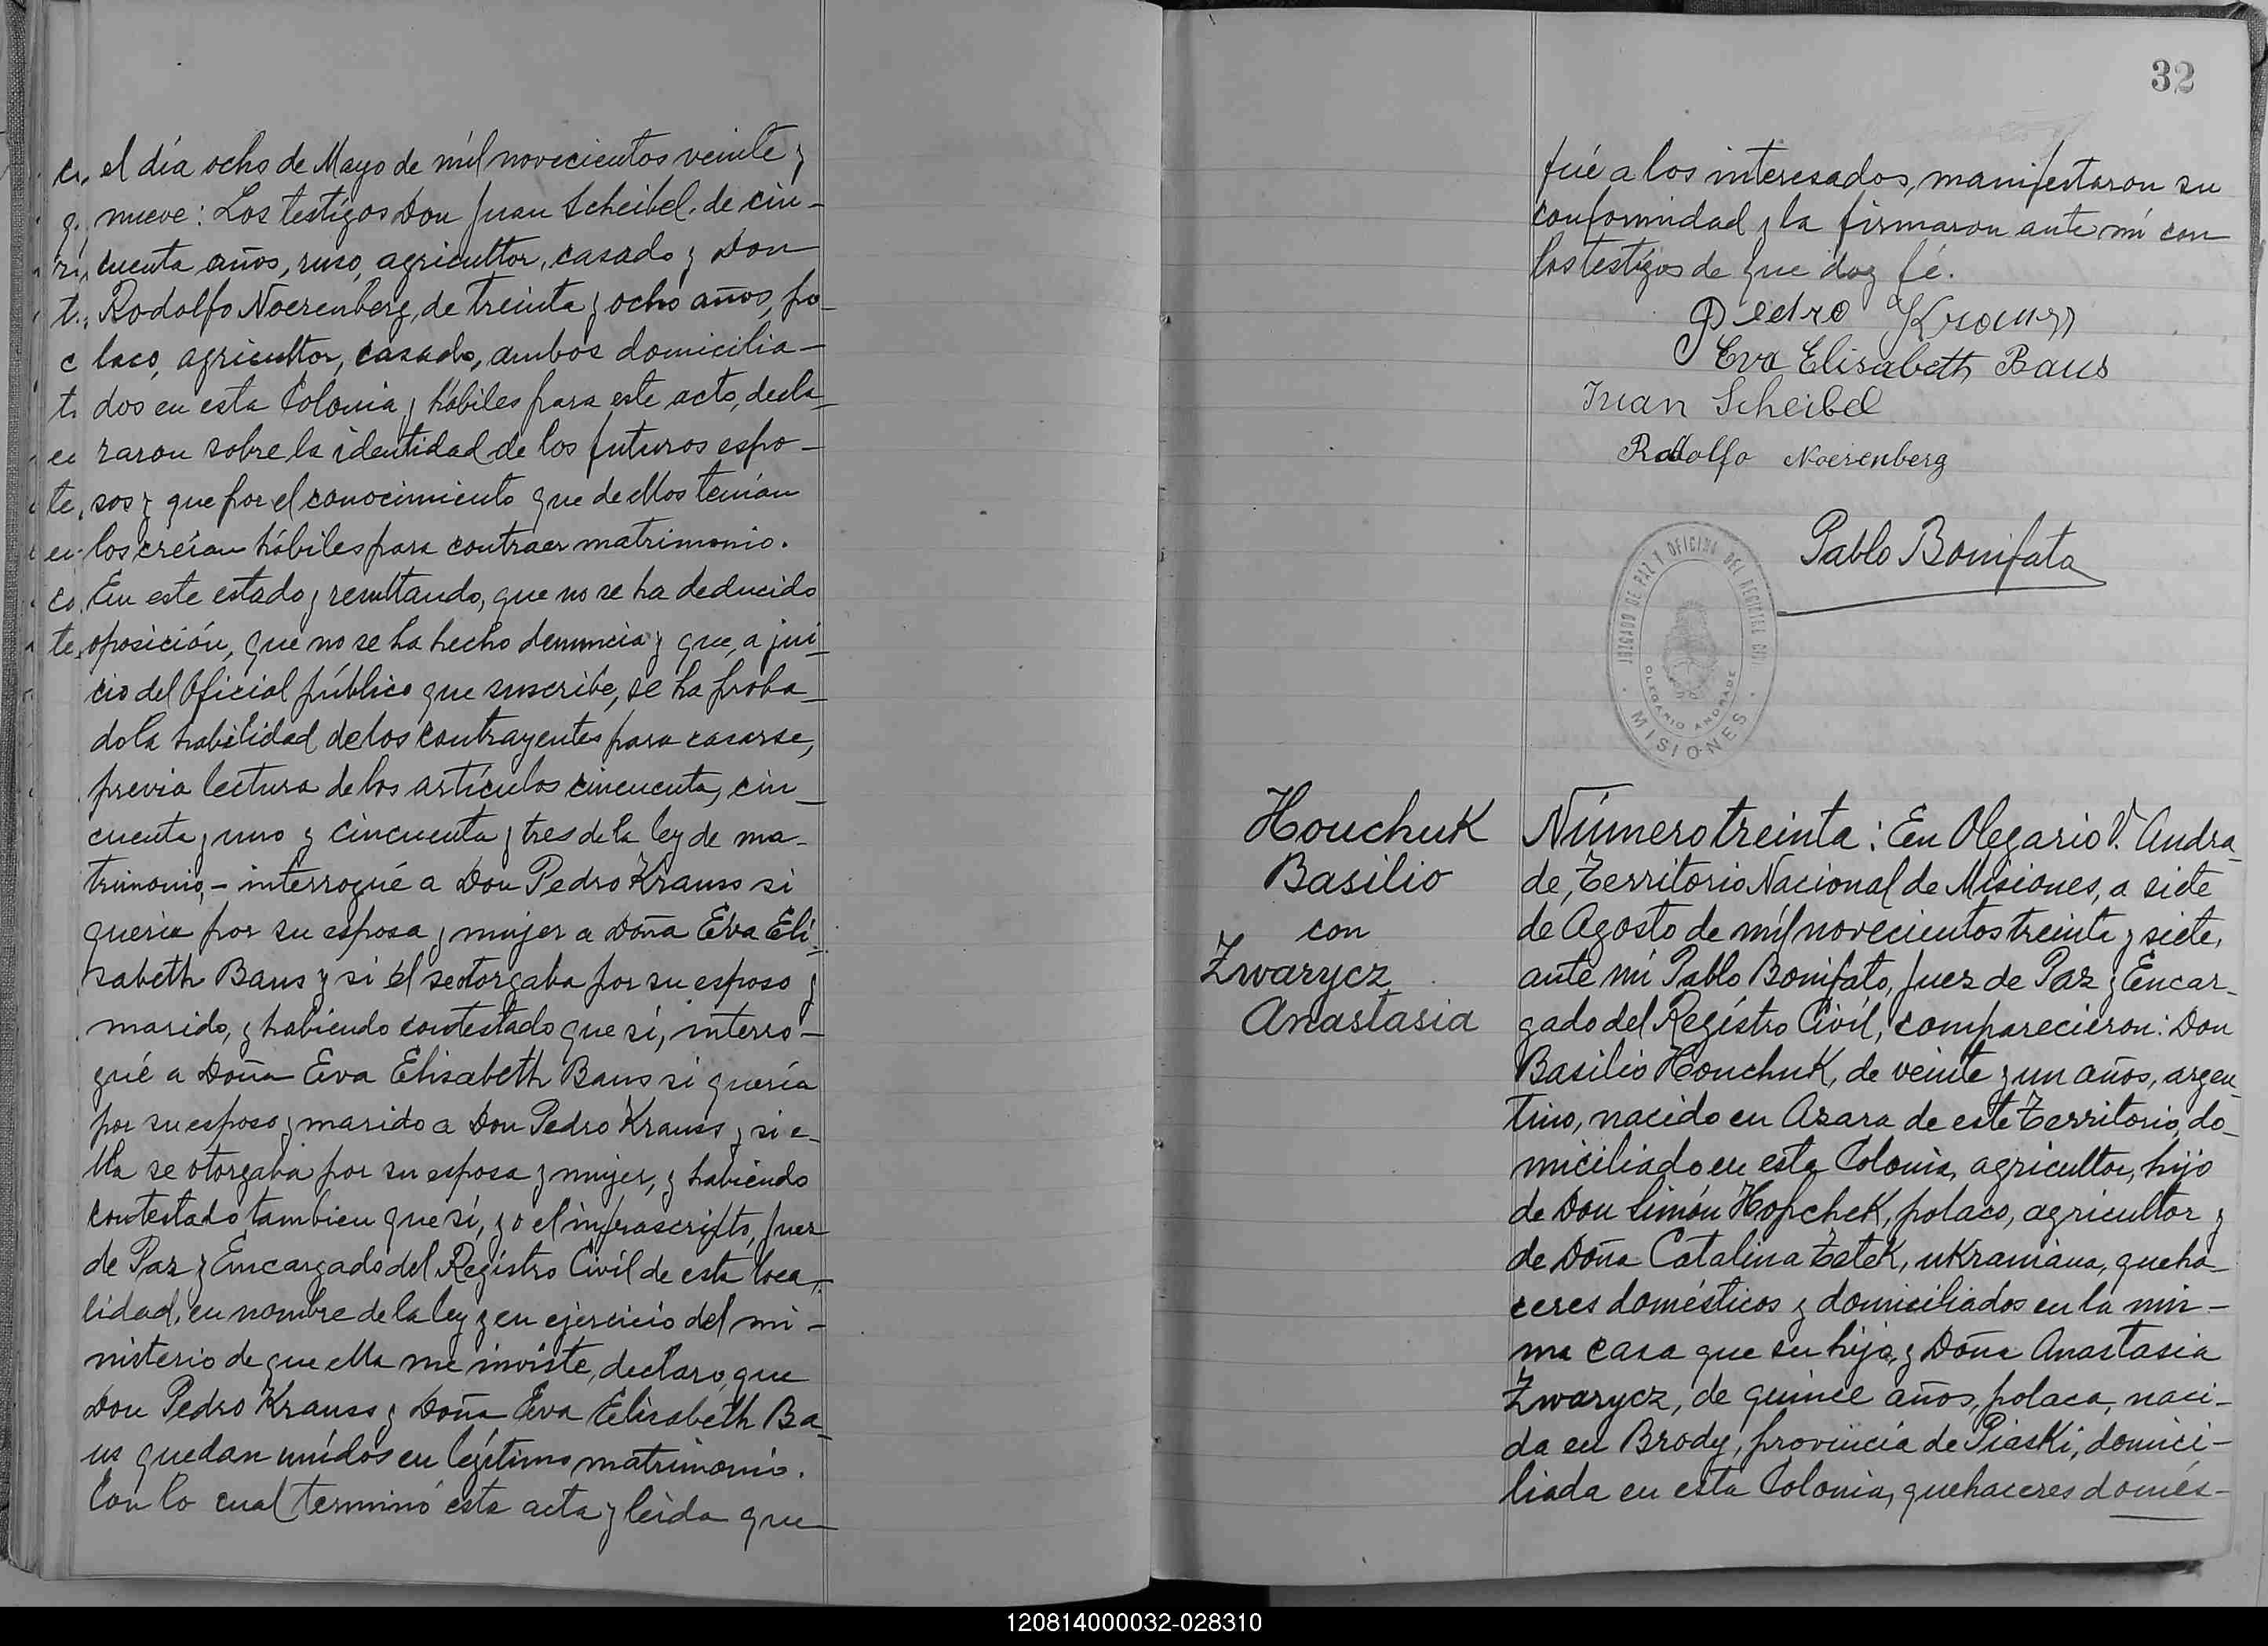 el día ocho de Mayo de mil novecientos veinte y
nueve: Los testigos Don Juan Scheibel, de cin-
cuenta años, ruso, agricultor, casado y Don
Rodolfo Noerenberg, de treinta y ocho años, po-
laco, agricultor, casado, ambos domicilia-
dos en esta Colonia y hábiles para este acto, decla-
raron sobre la identidad de los futuros espo-
sos y que por el conocimiento que de ellos tenían
los creían hábiles para contraer matrimonio.
En este estado y resultando, que no se ha deducido
oposición, que no se ha hecho denuncia y que, a jui-
cio del Oficial público que suscribe, se ha proba-
do la habilidad de los contrayentes para casarse,
previa lectura de los artículos cincuenta, cin-
cuenta y uno y cincuenta y tres de la ley de ma-
trimonio,- interrogué a Don Pedro Krauss si
quería por su esposa y mujer a Doña Eva Eli-
sabeth Baus y si él se otorgaba por su esposo y
marido, y habiendo contestado que sí, interro-
gué a Doña Eva Elisabeth Baus si quería
por su esposo y marido a Don Pedro Krauss y si e-
lla se otorgaba por su esposa y mujer, y habiendo
contestado tambien que sí, yo el infrascripto, Juez
de Paz y Encargado del Registro Civil de esta loca-
lidad, en nombre de la ley y en ejercicio del mi-
nisterio de que ella me inviste, declaro, que
Don Pedro Krauss y Doña Eva Elisabeth Ba-
us quedan unidos en legítimo matrimonio.
Con lo cual terminó esta acta y leída que
32
fué a los interesados, manifestaron su
conformidad y la firmaron ante mí con
los testigos de que doy fé.
Pedro Krauss
Eva Elisabeth Baus
Juan Scheibel
Rodolfo Noerenberg
Pablo Bonifato
JUZGADO DE PAZ Y OFICINA DEL REGISTRO CIVIL
OLEGARIO ANDRADE
MISIONES
Houchuk
Basilio
con
Zwarycz
Anastasia
Número treinta: En Olegario V. Andra-
de, Territorio Nacional de Misiones, a siete
de Agosto de mil novecientos treinta y siete,
ante mí Pablo Bonifato, Juez de Paz y Encar-
gado del Registro Civil, comparecieron: Don
Basilio Houchuk, de veinte y un años, argen-
tino, nacido en Azara de este Territorio, do-
miciliado en esta Colonia, agricultor, hijo
de Don Simón Hopchek, polaco, agricultor y
de Doña Catalina Zatek, ukraniana, queha-
ceres domésticos y domiciliados en la mis-
ma casa que su hijo, y Doña Anastasia
Zwarycz, de quince años, polaca, naci-
da en Brody, provincia de Piaski, domici-
liada en esta Colonia, quehaceres domés-
120814000032-028310